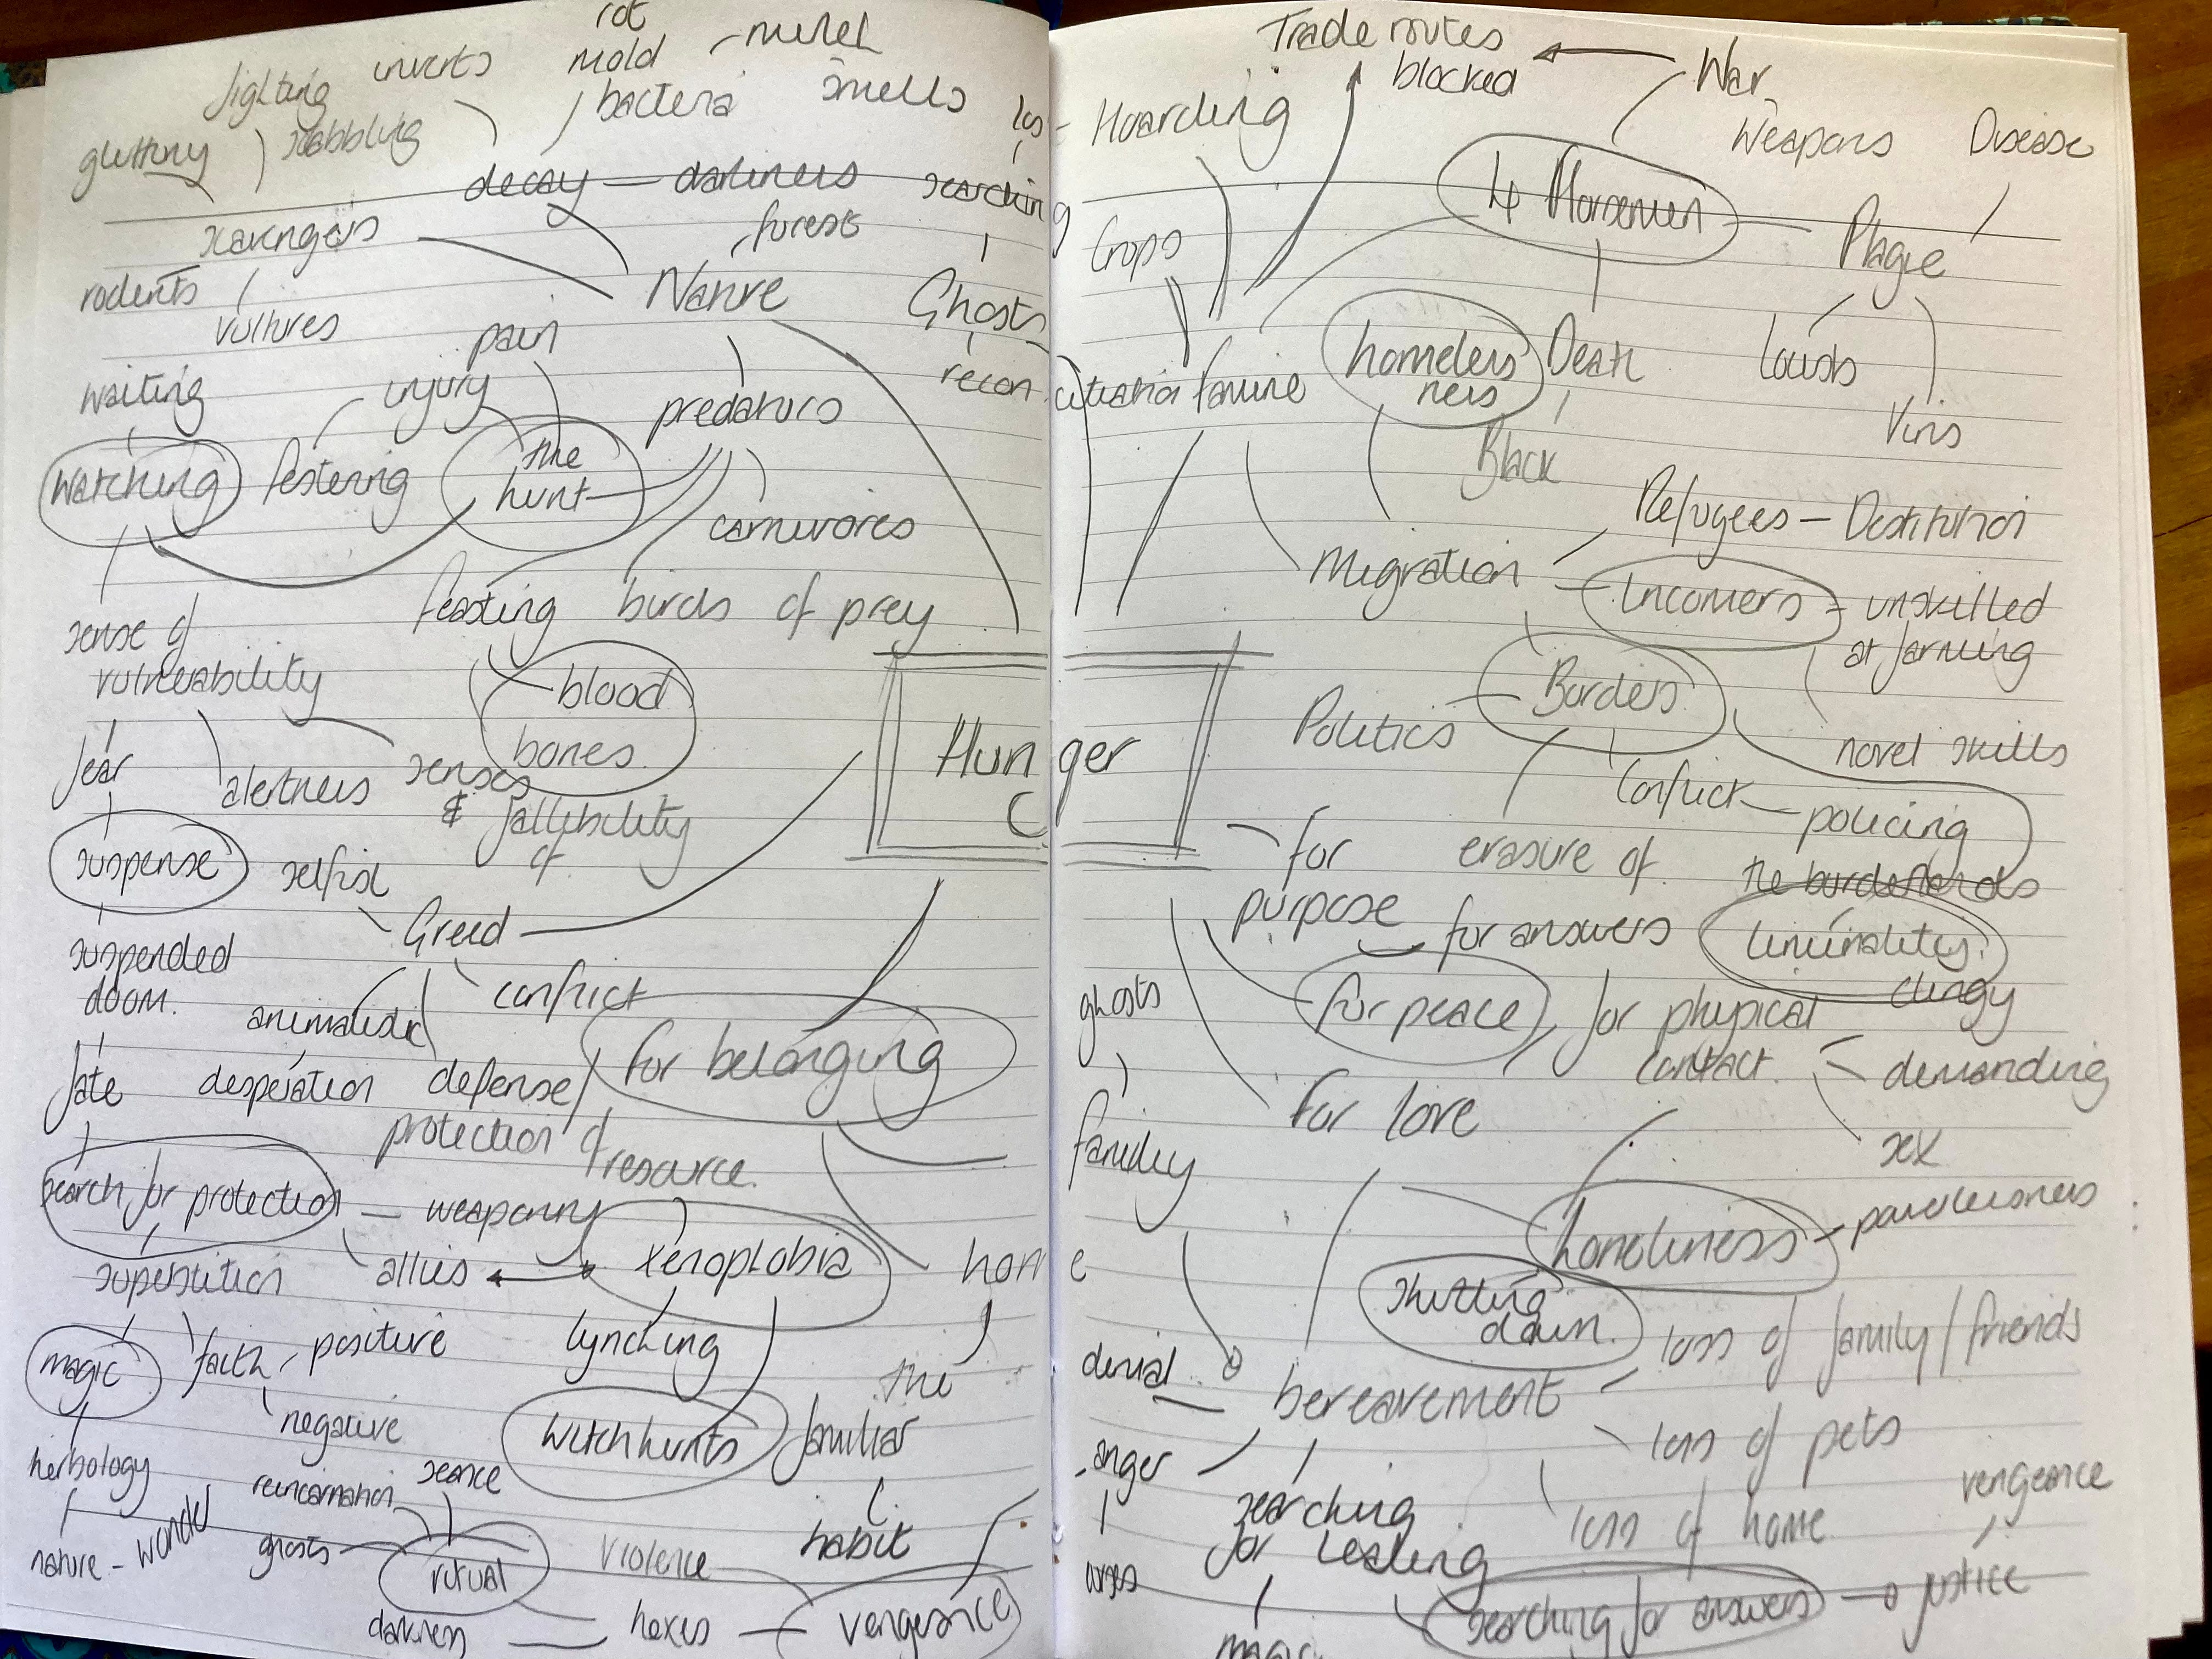 rot
mold
bacteria
smells
fighting
gluttony
decay — darkness
forest
searching
rodents
vultures
Nature
Ghosts
pain
waiting
injury
predators
watching
festering
the
hunt
carnivores
feasting
birds of prey
sense of
vulnerability
blood
bones
fear
alertness
senses
& fallibility
of
Hunger
suspense
selfish
Greed
suspended
doom.
conflict
for belonging
fate
desperation
defense /
protection of
resource.
search for protection
— weaponry
superstition
allies
xenophobia
home
magic
faith
positive
negative
lynching
the
familiar
witchhunts
herbology
reincarnation
seance
nature - wonder
ghosts
ritual
violence
habit
darkness
hexes
vengeance
Trade routes
blocked
War
Hoarding
Weapons
Disease
4 Horsemen
Crops
Plague
famine
homeless
ness
Death
locusts
Virus
Black
Refugees — Destitution
Migration
Incomers
unskilled
at farming
Borders
Politics
novel skills
Conflict
policing
the borderlands
for
purpose
erasure of
for answers
liminalities.
clingy
ghosts
for peace
for physical
contact.
demanding
for love
sex
family
Loneliness
powerlessness
shutting
down.
loss of family/friends
denial
bereavement
anger
loss of pets
searching
for healing
loss of home
vengeance
searching for answers
justice
magic